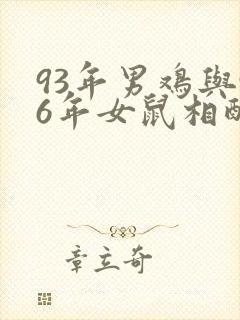 93年男鸡與
6年女鼠相
章立奇